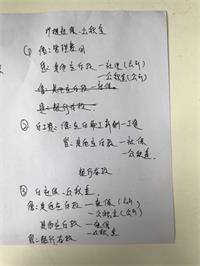 计提社保、公积金
① 借：管理费用
贷：其他应付款—社保（公司）
—公积金（公司）
② 发工资：借：应付职工薪酬—工资
贷：其他应付款—社保
—公积金
银行存款
③ 付社保、公积金
借：其他应付款—社保（公司）
—公积金（公司）
其他应付款—社保
—公积金
贷：银行存款